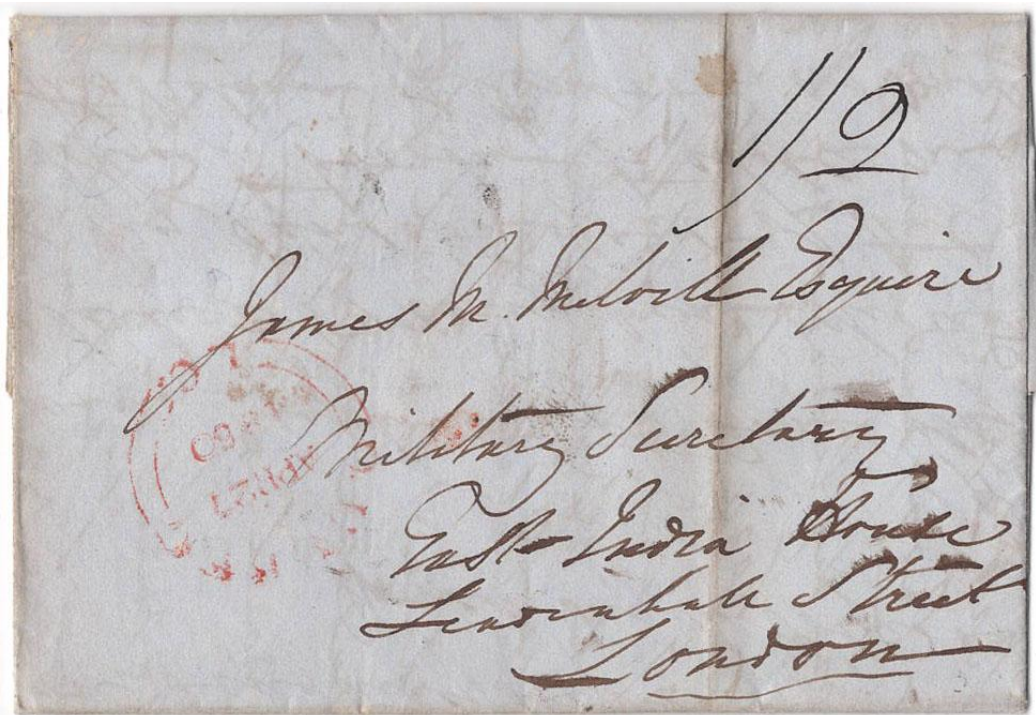 1/2
James M. Melvill Esquire
Military Secretary
East India House
Leadenhall Street
London